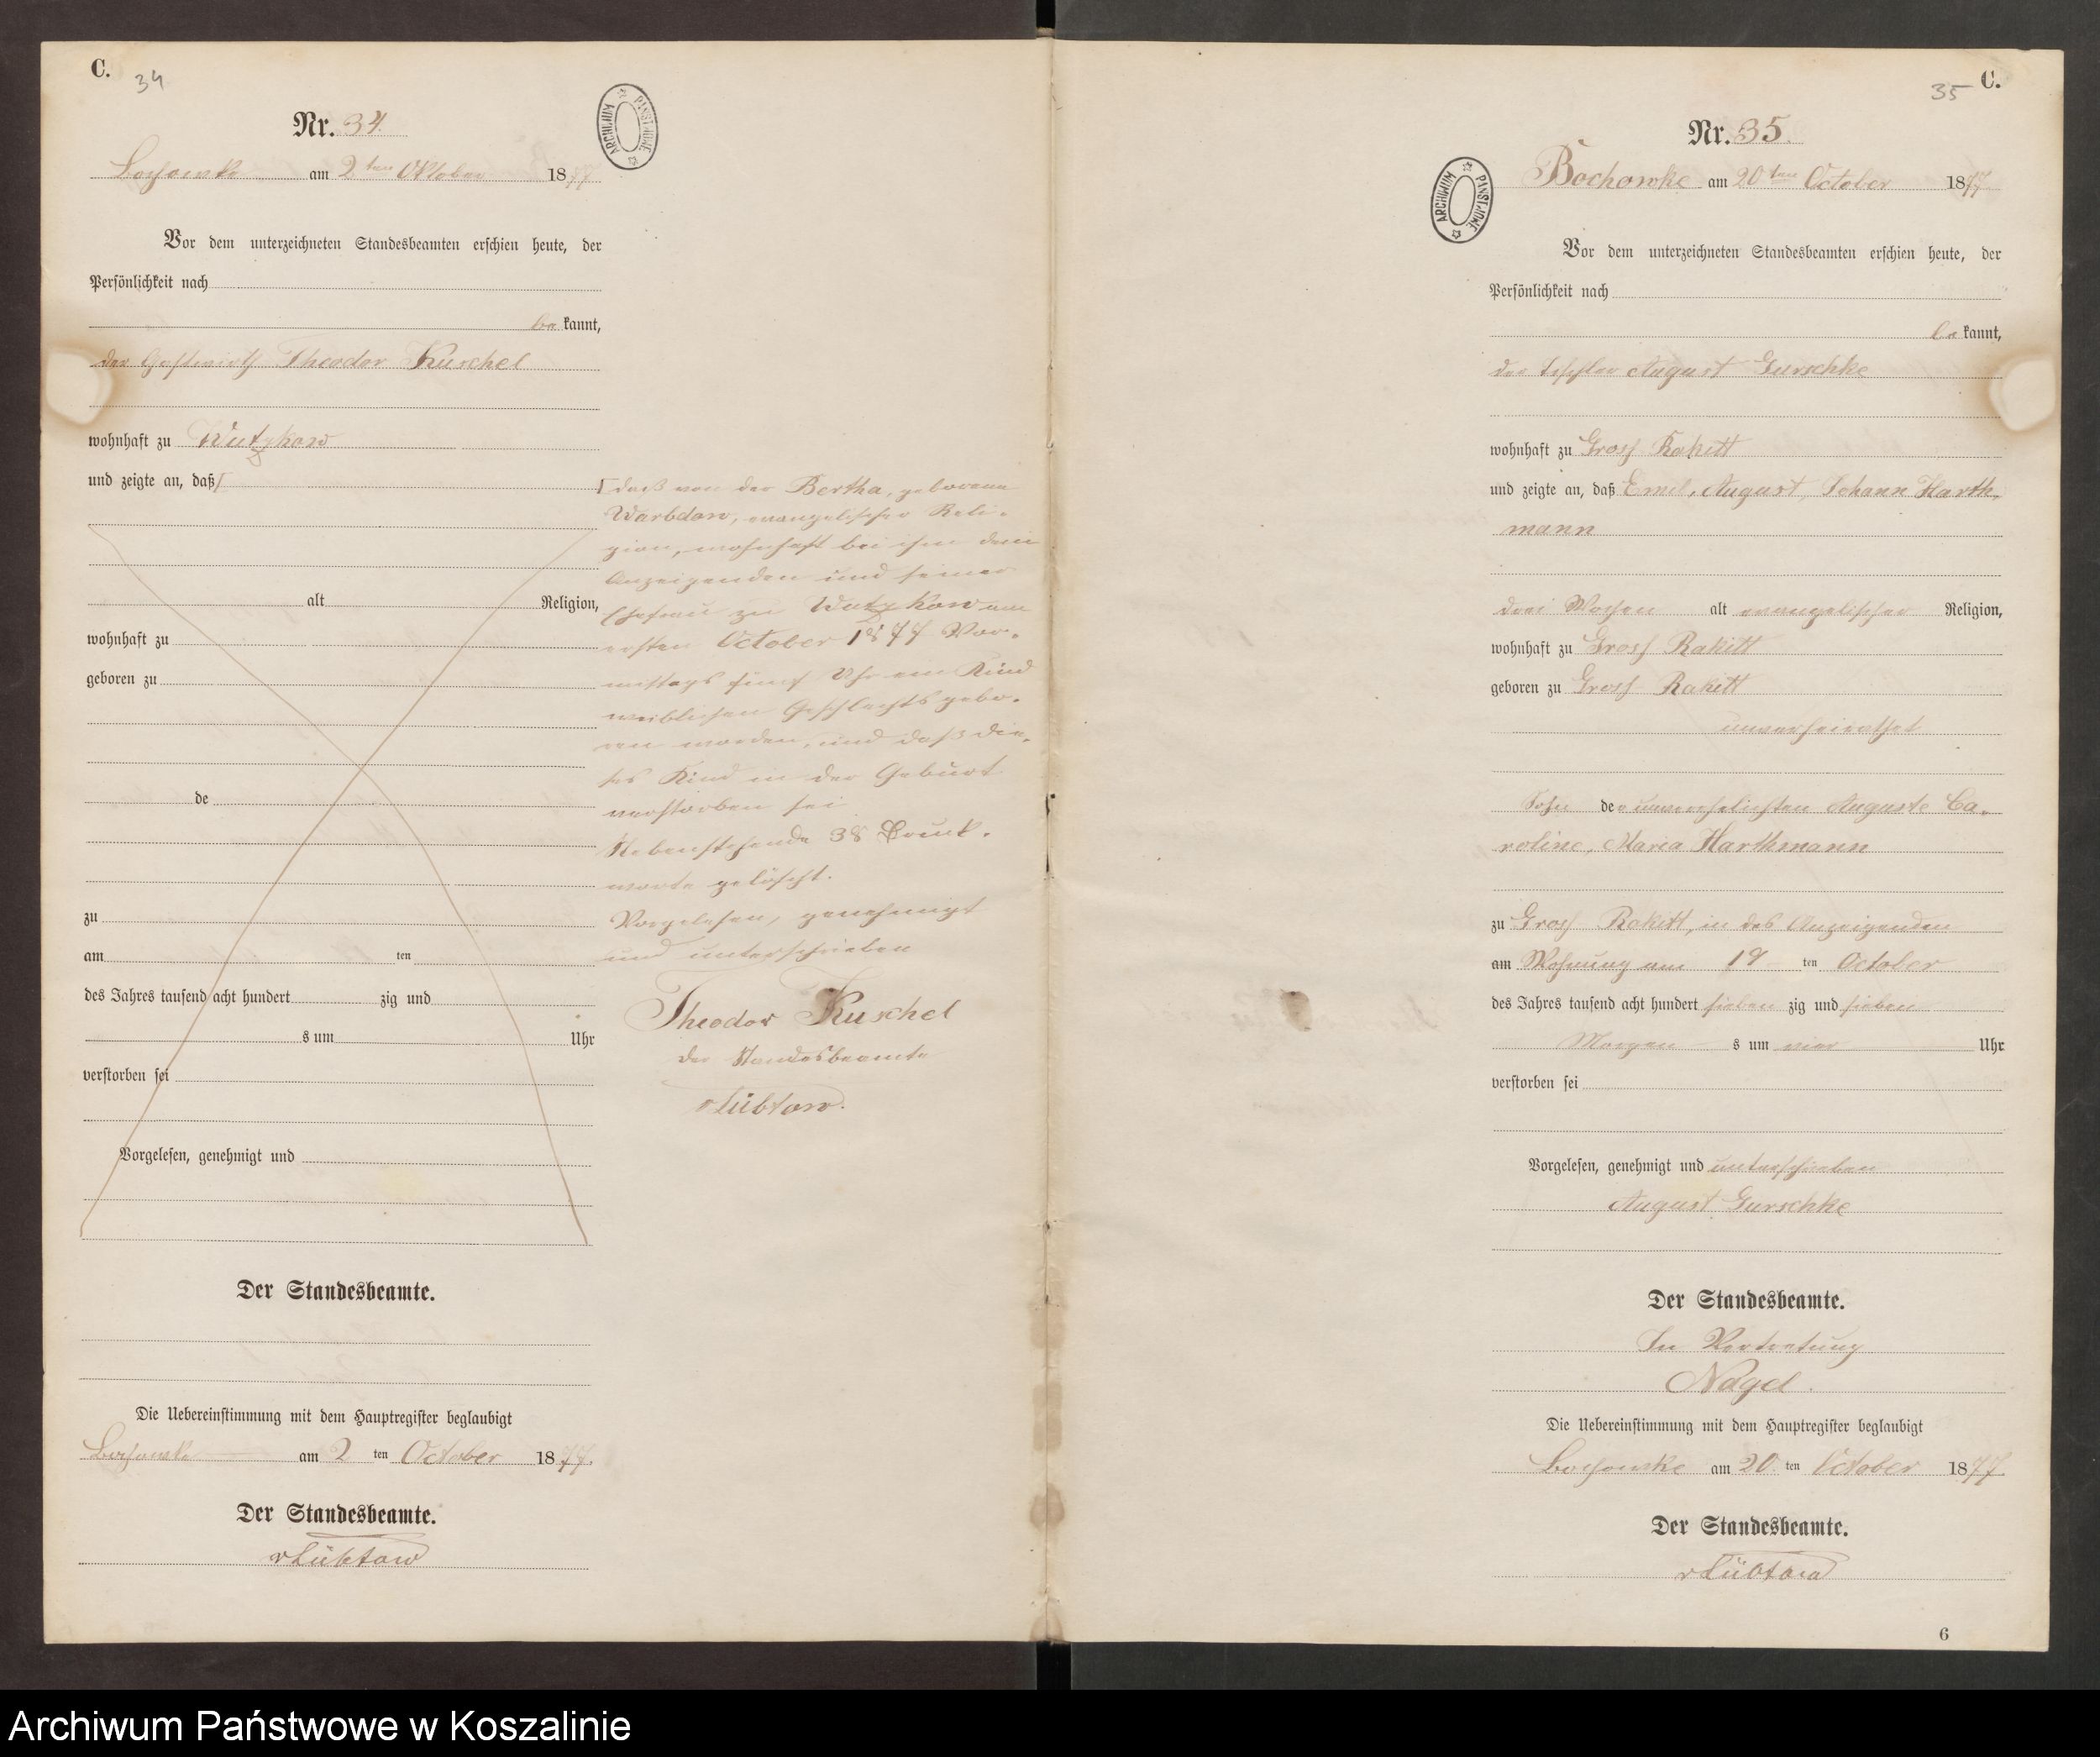 C.
34
Nr. 34.
ARCHIWUM PAŃSTWOWE
Bochowke am 2ten Oktober 1877
Vor dem unterzeichneten Standesbeamten erschien heute, der
Persönlichkeit nach
be kannt,
der Gastwirth Theodor Kuschel
wohnhaft zu Wutzkow
und zeigte an, daß
alt Religion,
wohnhaft zu
geboren zu
de
zu
am ten
des Jahres tausend acht hundert zig und
s um Uhr
verstorben sei
Vorgelesen, genehmigt und
daß von der Bertha, geborene
Warbdow, evangelischer Reli-
gion, wohnhaft bei ihm dem
Anzeigenden und seiner
Ehefrau zu Wutzkow am
ersten October 1877 Vor-
mittags fünf Uhr ein Kind
weiblichen Geschlechts gebo-
ren worden, und daß die-
ses Kind in der Geburt
verstorben sei
Nebenstehende 38 Druck-
worte gelöscht.
Vorgelesen, genehmigt
und unterschrieben
Theodor Kuschel
Der Standesbeamte
vLübtow.
Der Standesbeamte.
Die Uebereinstimmung mit dem Hauptregister beglaubigt
Bochowke am 2 ten October 1877.
Der Standesbeamte.
vLübtow
C.
35
Nr. 35.
ARCHIWUM PAŃSTWOWE
Bochowke am 20ten October 1877
Vor dem unterzeichneten Standesbeamten erschien heute, der
Persönlichkeit nach
be kannt,
der Tischler August Gurschke
wohnhaft zu Gross Rakitt
und zeigte an, daß Emil, August, Johann Harth-
mann
drei Wochen alt evangelischer Religion,
wohnhaft zu Gross Rakitt
geboren zu Gross Rakitt
unverheirathet
Sohn der unverehelichten Auguste Ca-
roline, Maria Harthmann
zu Gross Rakitt, in des Anzeigenden
am Wohnung am 19 ten October
des Jahres tausend acht hundert sieben zig und sieben
Morgen s um vier Uhr
verstorben sei
Vorgelesen, genehmigt und unterschrieben
August Gurschke
Der Standesbeamte.
In Vertretung
Nagel.
Die Uebereinstimmung mit dem Hauptregister beglaubigt
Bochowke am 20 ten October 1877.
Der Standesbeamte.
vLübtow
6
Archiwum Państwowe w Koszalinie